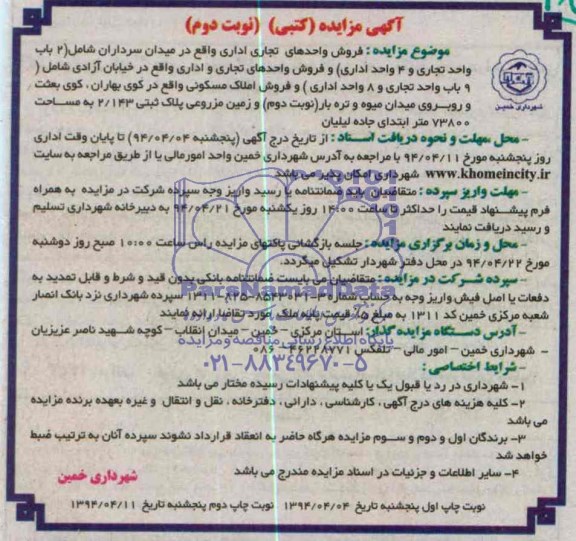 آگهی مزایده (کتبی) (نوبت دوم)
موضوع مزایده : فروش واحدهای تجاری اداری واقع در میدان سرداران شامل(۲ باب
واحد تجاری و ۴ واحد اداری) و فروش واحدهای تجاری و اداری واقع در خیابان آزادی شامل (
۹ باب واحد تجاری و ۸ واحد اداری ) و فروش املاک مسکونی واقع در کوی بهاران ، کوی بعثت
و روبروی میدان میوه و تره بار(نوبت دوم) و زمین مزروعی پلاک ثبتی ۲/۱۴۳ به مساحت
۷۳۸۰۰ متر ابتدای جاده لیلیان
شهرداری خمین
- محل ،مهلت و نحوه دریافت اسناد : از تاریخ درج آگهی (پنجشنبه ۹۴/۰۴/۰۴) تا پایان وقت اداری
روز پنجشنبه مورخ ۹۴/۰۴/۱۱ با مراجعه به آدرس شهرداری خمین واحد امورمالی یا از طریق مراجعه به سایت
www.khomeincity.ir شهرداری امکان پذیر می باشد
- مهلت واریز سپرده : متقاضیان باید ضمانتنامه یا رسید واریز وجه سپرده شرکت در مزایده به همراه
فرم پیشنهاد قیمت را حداکثر تا ساعت ۱۴:۰۰ روز یکشنبه مورخ ۹۴/۰۴/۲۱ به دبیرخانه شهرداری تسلیم
و رسید دریافت نمایند
- محل و زمان برگزاری مزایده : جلسه بازگشائی پاکتهای مزایده راس ساعت ۱۰:۰۰ صبح روز دوشنبه
مورخ ۹۴/۰۴/۲۲ در محل دفتر شهردار تشکیل میگردد.
- سپرده شرکت در مزایده : متقاضیان می بایست ضمانتنامه بانکی بدون قید و شرط و قابل تمدید به
دفعات یا اصل فیش واریز وجه به حساب شماره سپرده شهرداری نزد بانک انصار
شعبه مرکزی خمین کد ۱۳۱۱ به مبلغ ۵٪ قیمت پایه ملک مورد تقاضا ارائه نمایند
- آدرس دستگاه مزایده گذار: استان مرکزی - خمین - میدان انقلاب - کوچه شهید ناصر عزیزیان
- شهرداری خمین - امور مالی - تلفکس ۴۶۲۲۸۷۷۱ - ۰۸۶
- شرایط اختصاصی :
۱- شهرداری در رد یا قبول یک یا کلیه پیشنهادات رسیده مختار می باشد
۲- کلیه هزینه های درج آگهی ، کارشناسی ، دارائی ، دفترخانه ، نقل و انتقال و غیره بعهده برنده مزایده
می باشد
۳- برندگان اول و دوم و سوم مزایده هرگاه حاضر به انعقاد قرارداد نشوند سپرده آنان به ترتیب ضبط
خواهد شد
۴- سایر اطلاعات و جزئیات در اسناد مزایده مندرج می باشد
شهرداری خمین
نوبت چاپ اول پنجشنبه تاریخ ۱۳۹۴/۰۴/۰۴ نوبت چاپ دوم پنجشنبه تاریخ ۱۳۹۴/۰۴/۱۱
ParsNamadData
پایگاه اطلاع رسانی مناقصه و مزایده
۰۲۱-۸۸۳۴۹۶۷۰-۵